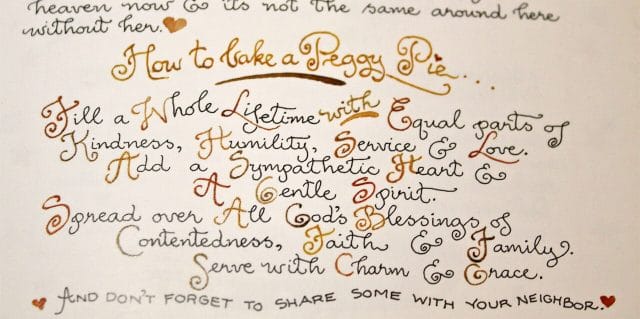 heaven now & its not the same around here
without her.
How to bake a Peggy Pie...
Fill a Whole Lifetime with Equal parts of
Kindness, Humility, Service & Love.
Add a Sympathetic Heart &
A Gentle Spirit.
Spread over All God's Blessings of
Contentedness, Faith & Family.
Serve with Charm & Grace.
AND DON'T FORGET TO SHARE SOME WITH YOUR NEIGHBOR.